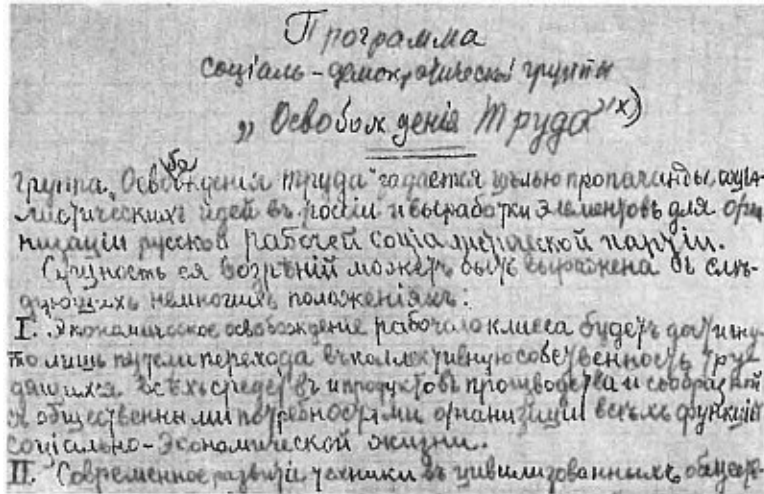 Программа
соціаль-демократической группы
„Освобожденія Труда" х)
группа „Освобожденія труда" задается цѣлью пропаганды соціа-
листическихъ идей въ россіи и выработки элементовъ для орга-
низаціи русской рабочей соціалистической партіи.
Сущность ея воззрѣній можетъ быть выражена въ слѣ-
дующихъ немногихъ положеніяхъ:
I. Экономическое освобожденіе рабочаго класса будетъ достигну-
то лишь путемъ перехода въ коллективную собственность тру-
дящихся всѣхъ средствъ и продуктовъ производства и сообразной
съ общественными потребностями организаціи всѣхъ функцій
соціально-Экономической жизни.
II. Современное развитіе техники въ цивилизованныхъ обществ-